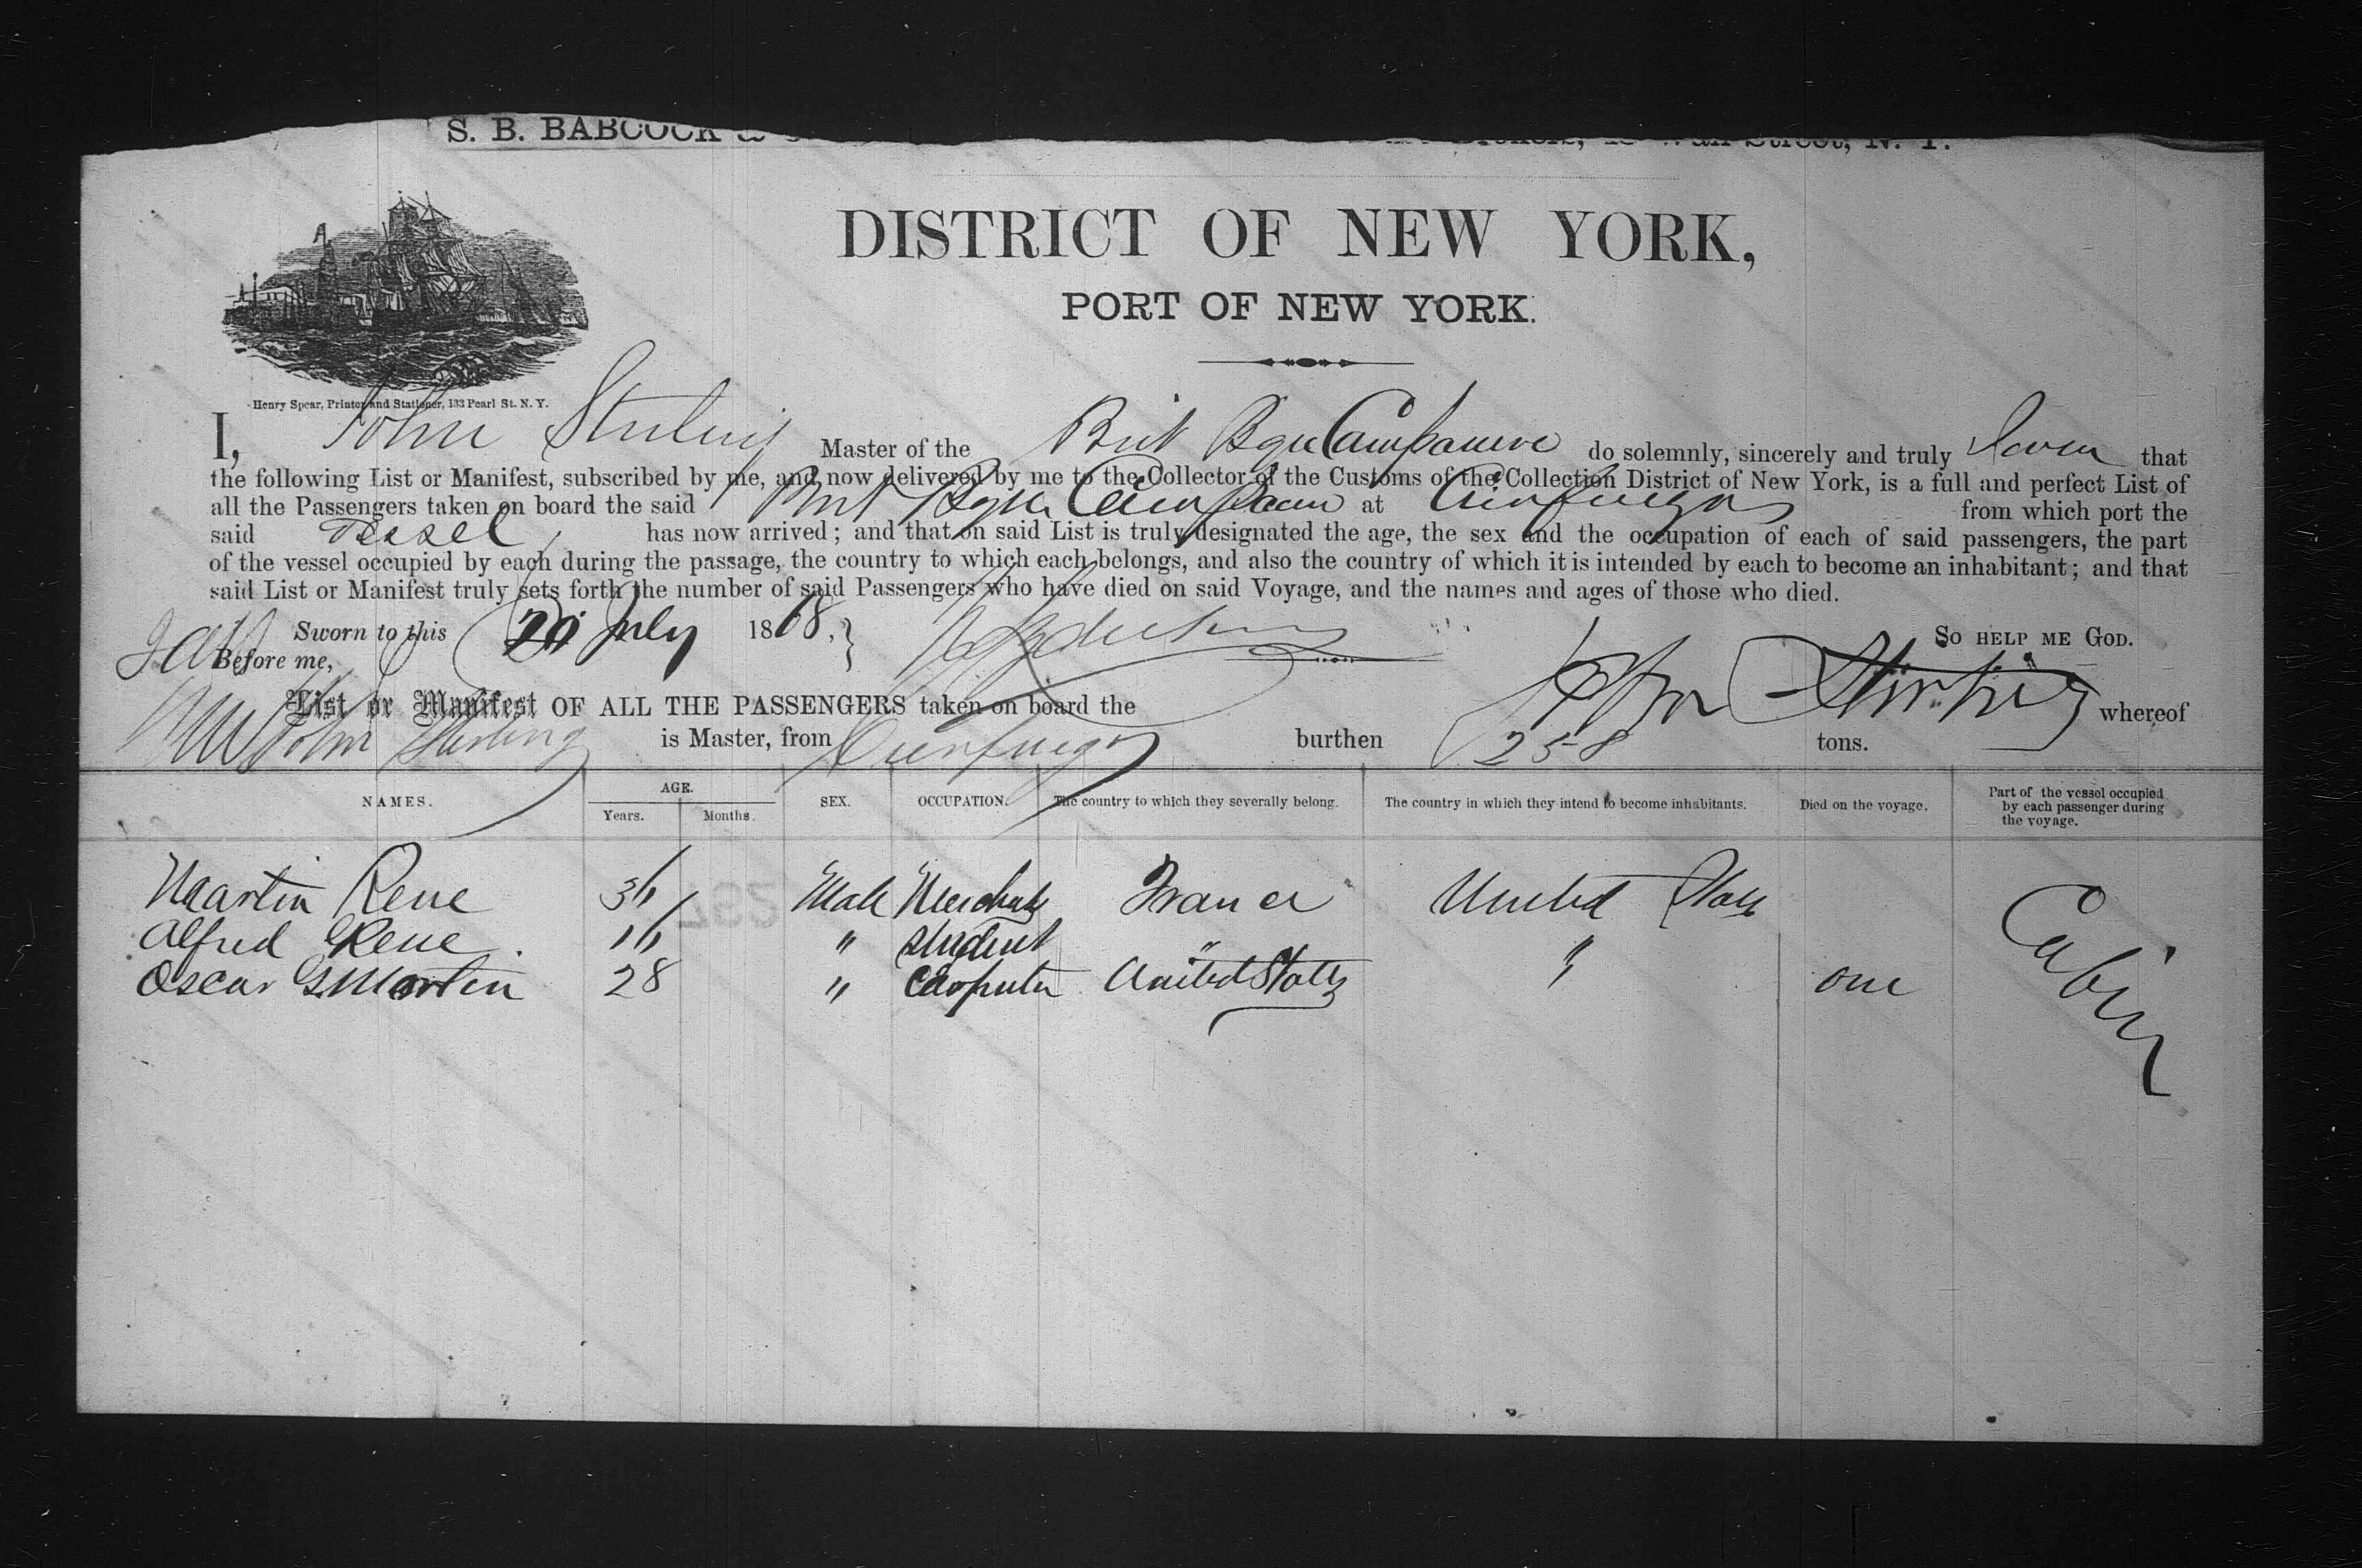 S. B. BABCOCK & Brokers, Wall Street, N. Y.
DISTRICT OF NEW YORK,
PORT OF NEW YORK.
Henry Spear, Printer and Stationer, 133 Pearl St. N. Y.
I, John Sterling Master of the Brit Bque do solemnly, sincerely and truly swear that
the following List or Manifest, subscribed by me, and now delivered by me to the Collector of the Customs of the Collection District of New York, is a full and perfect List of
all the Passengers taken on board the said Brit Bque at Cienfuegos from which port the
said Vessel has now arrived; and that on said List is truly designated the age, the sex and the occupation of each of said passengers, the part
of the vessel occupied by each during the passage, the country to which each belongs, and also the country of which it is intended by each to become an inhabitant; and that
said List or Manifest truly sets forth the number of said Passengers who have died on said Voyage, and the names and ages of those who died.
Sworn to this July 1868, SO HELP ME GOD.
Before me, John Stirling
List or Manifest OF ALL THE PASSENGERS taken on board the whereof
John Sterling is Master, from Cienfuegos burthen 258 tons.
NAMES. AGE. Years. Months. SEX. OCCUPATION. The country to which they severally belong. The country in which they intend to become inhabitants. Died on the voyage. Part of the vessel occupied by each passenger during the voyage.
Martin Rene 36 Male Merchant France United States Cabin
Alfred Rene 16 " student " "
Oscar G Martin 28 " Carpenter United States one